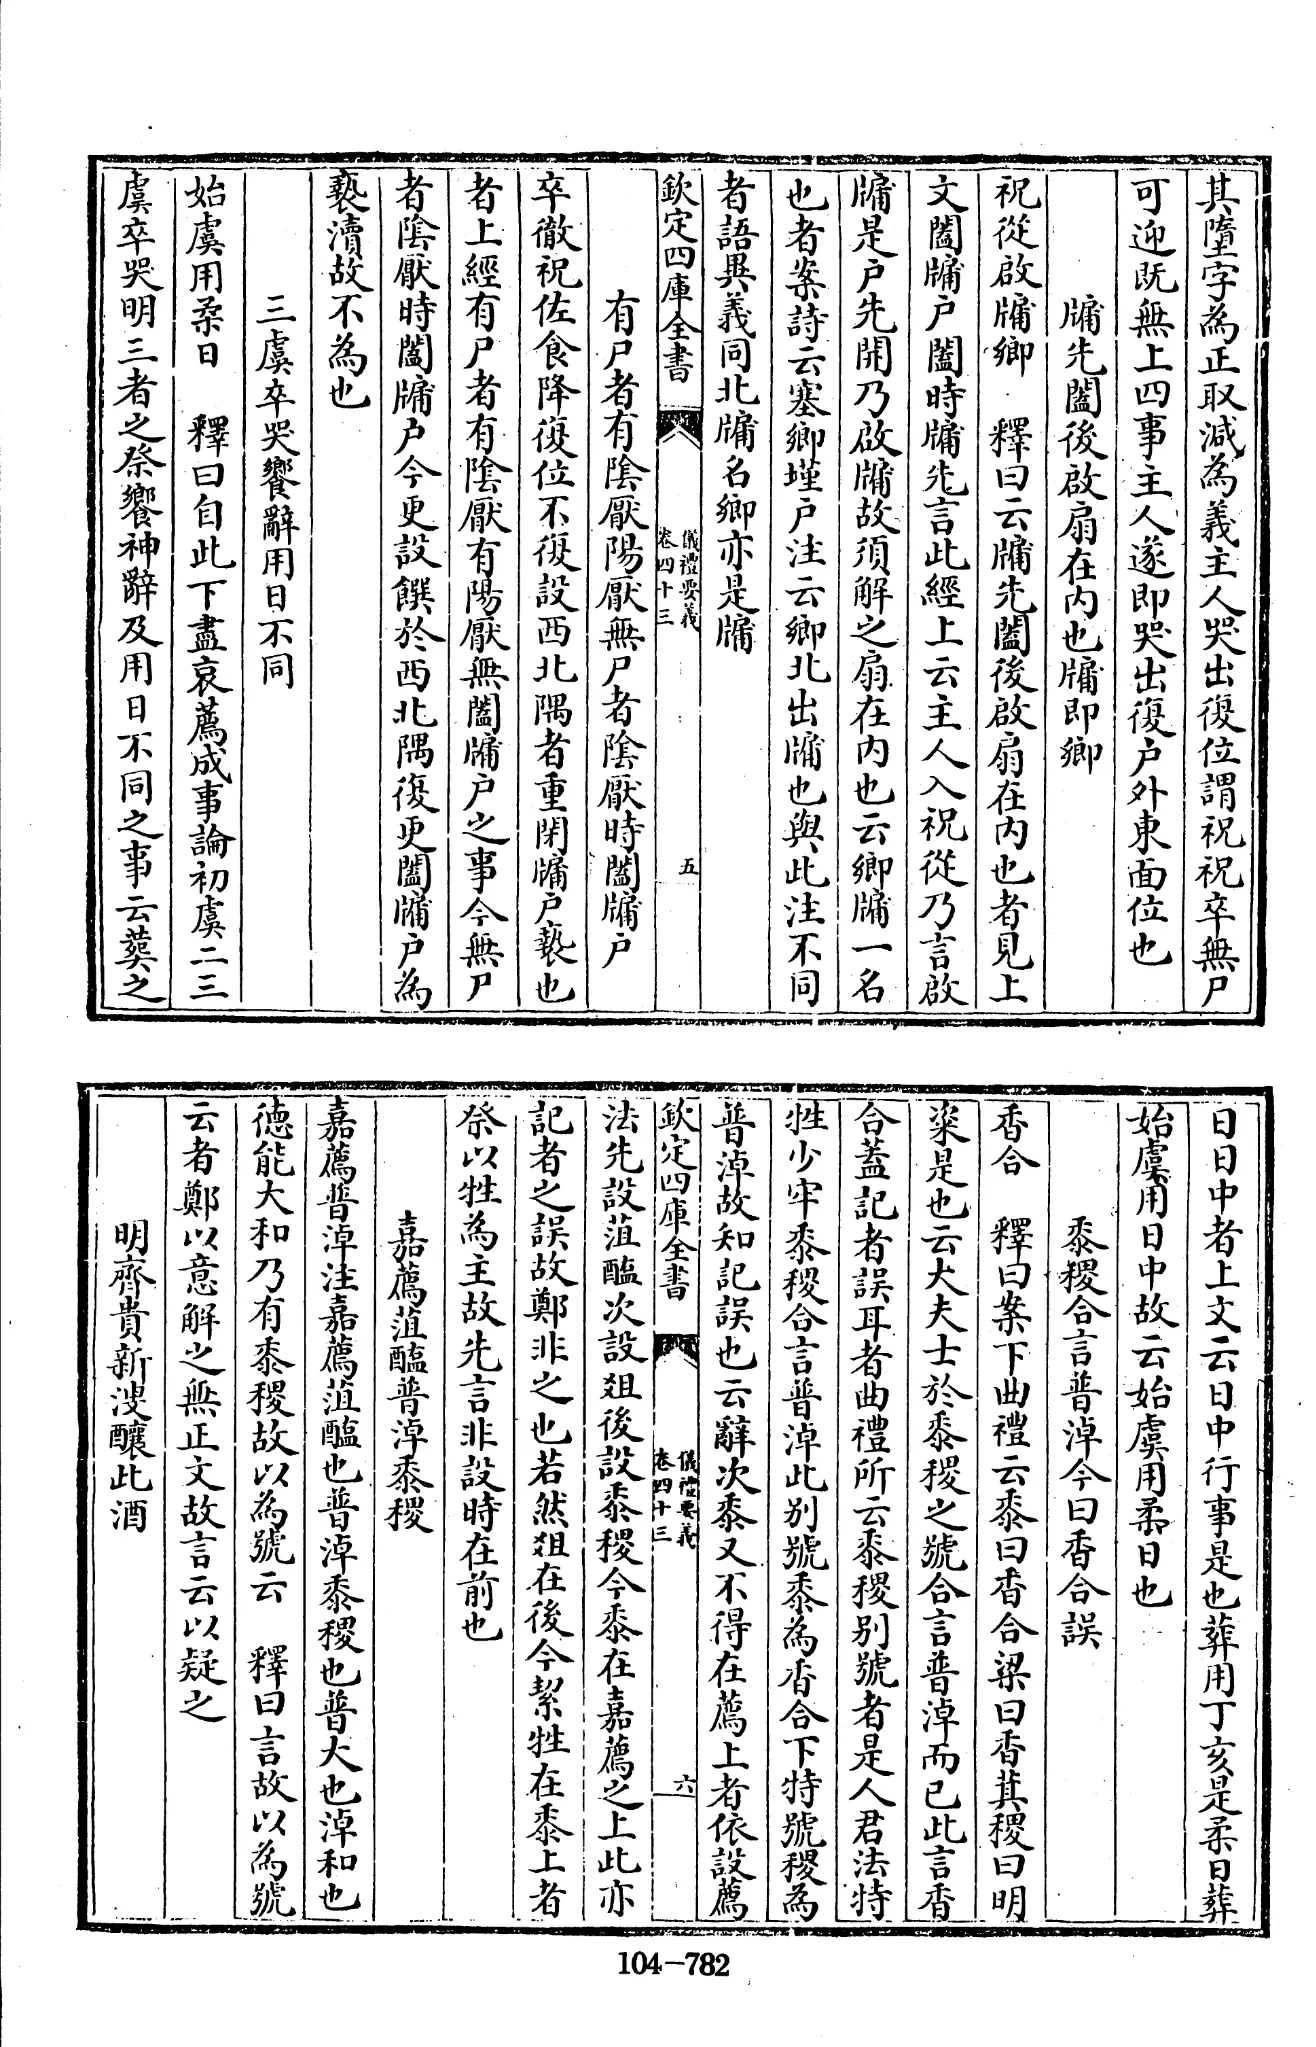 其墮字為正取減為義主人哭出復位謂祝祝卒無尸
可迎既無上四事主人遂即哭出復户外東面位也
牖先闔後啟扇在内也牖即鄉
祝從啟牖鄉　釋曰云牖先闔後啟扇在内也者見上
文闔牖户闔時牖先言此經上云主人入祝從乃言啟
牖是户先開乃啟牖故須解之扇在内也云鄉牖一名
也者案詩云塞鄉墐户注云鄉北出牖也與此注不同
者語異義同北牖名鄉亦是牖
欽定四庫全書
儀禮要義
卷四十三
五
有尸者有陰厭陽厭無尸者陰厭時闔牖户
卒徹祝佐食降復位不復設西北隅者重閉牖户褻也
者上經有尸者有陰厭有陽厭無闔牖户之事今無尸
者陰厭時闔牖户今更設饌於西北隅復更闔牖户為
褻瀆故不為也
三虞卒哭饗辭用日不同
始虞用柔日　釋曰自此下盡哀薦成事論初虞二三
虞卒哭明三者之祭饗神辭及用日不同之事云葬之
日日中者上文云日中行事是也葬用丁亥是柔日葬
始虞用日中故云始虞用柔日也
黍稷合言普淖今曰香合誤
香合　釋曰案下曲禮云黍曰香合梁曰香萁稷曰明
粢是也云大夫士於黍稷之號合言普淖而已此言香
合蓋記者誤耳者曲禮所云黍稷别號者是人君法特
牲少牢黍稷合言普淖此别號黍為香合下特號稷為
普淖故知記誤也云辭次黍又不得在薦上者依設薦
欽定四庫全書
儀禮要義
卷四十三
六
法先設菹醢次設俎後設黍稷今黍在嘉薦之上此亦
記者之誤故鄭非之也若然俎在後今絜牲在黍上者
祭以牲為主故先言非設時在前也
嘉薦菹醢普淖黍稷
嘉薦普淖注嘉薦菹醢也普淖黍稷也普大也淖和也
德能大和乃有黍稷故以為號云　釋曰言故以為號
云者鄭以意解之無正文故言云以疑之
明齊貴新溲釀此酒
104-782